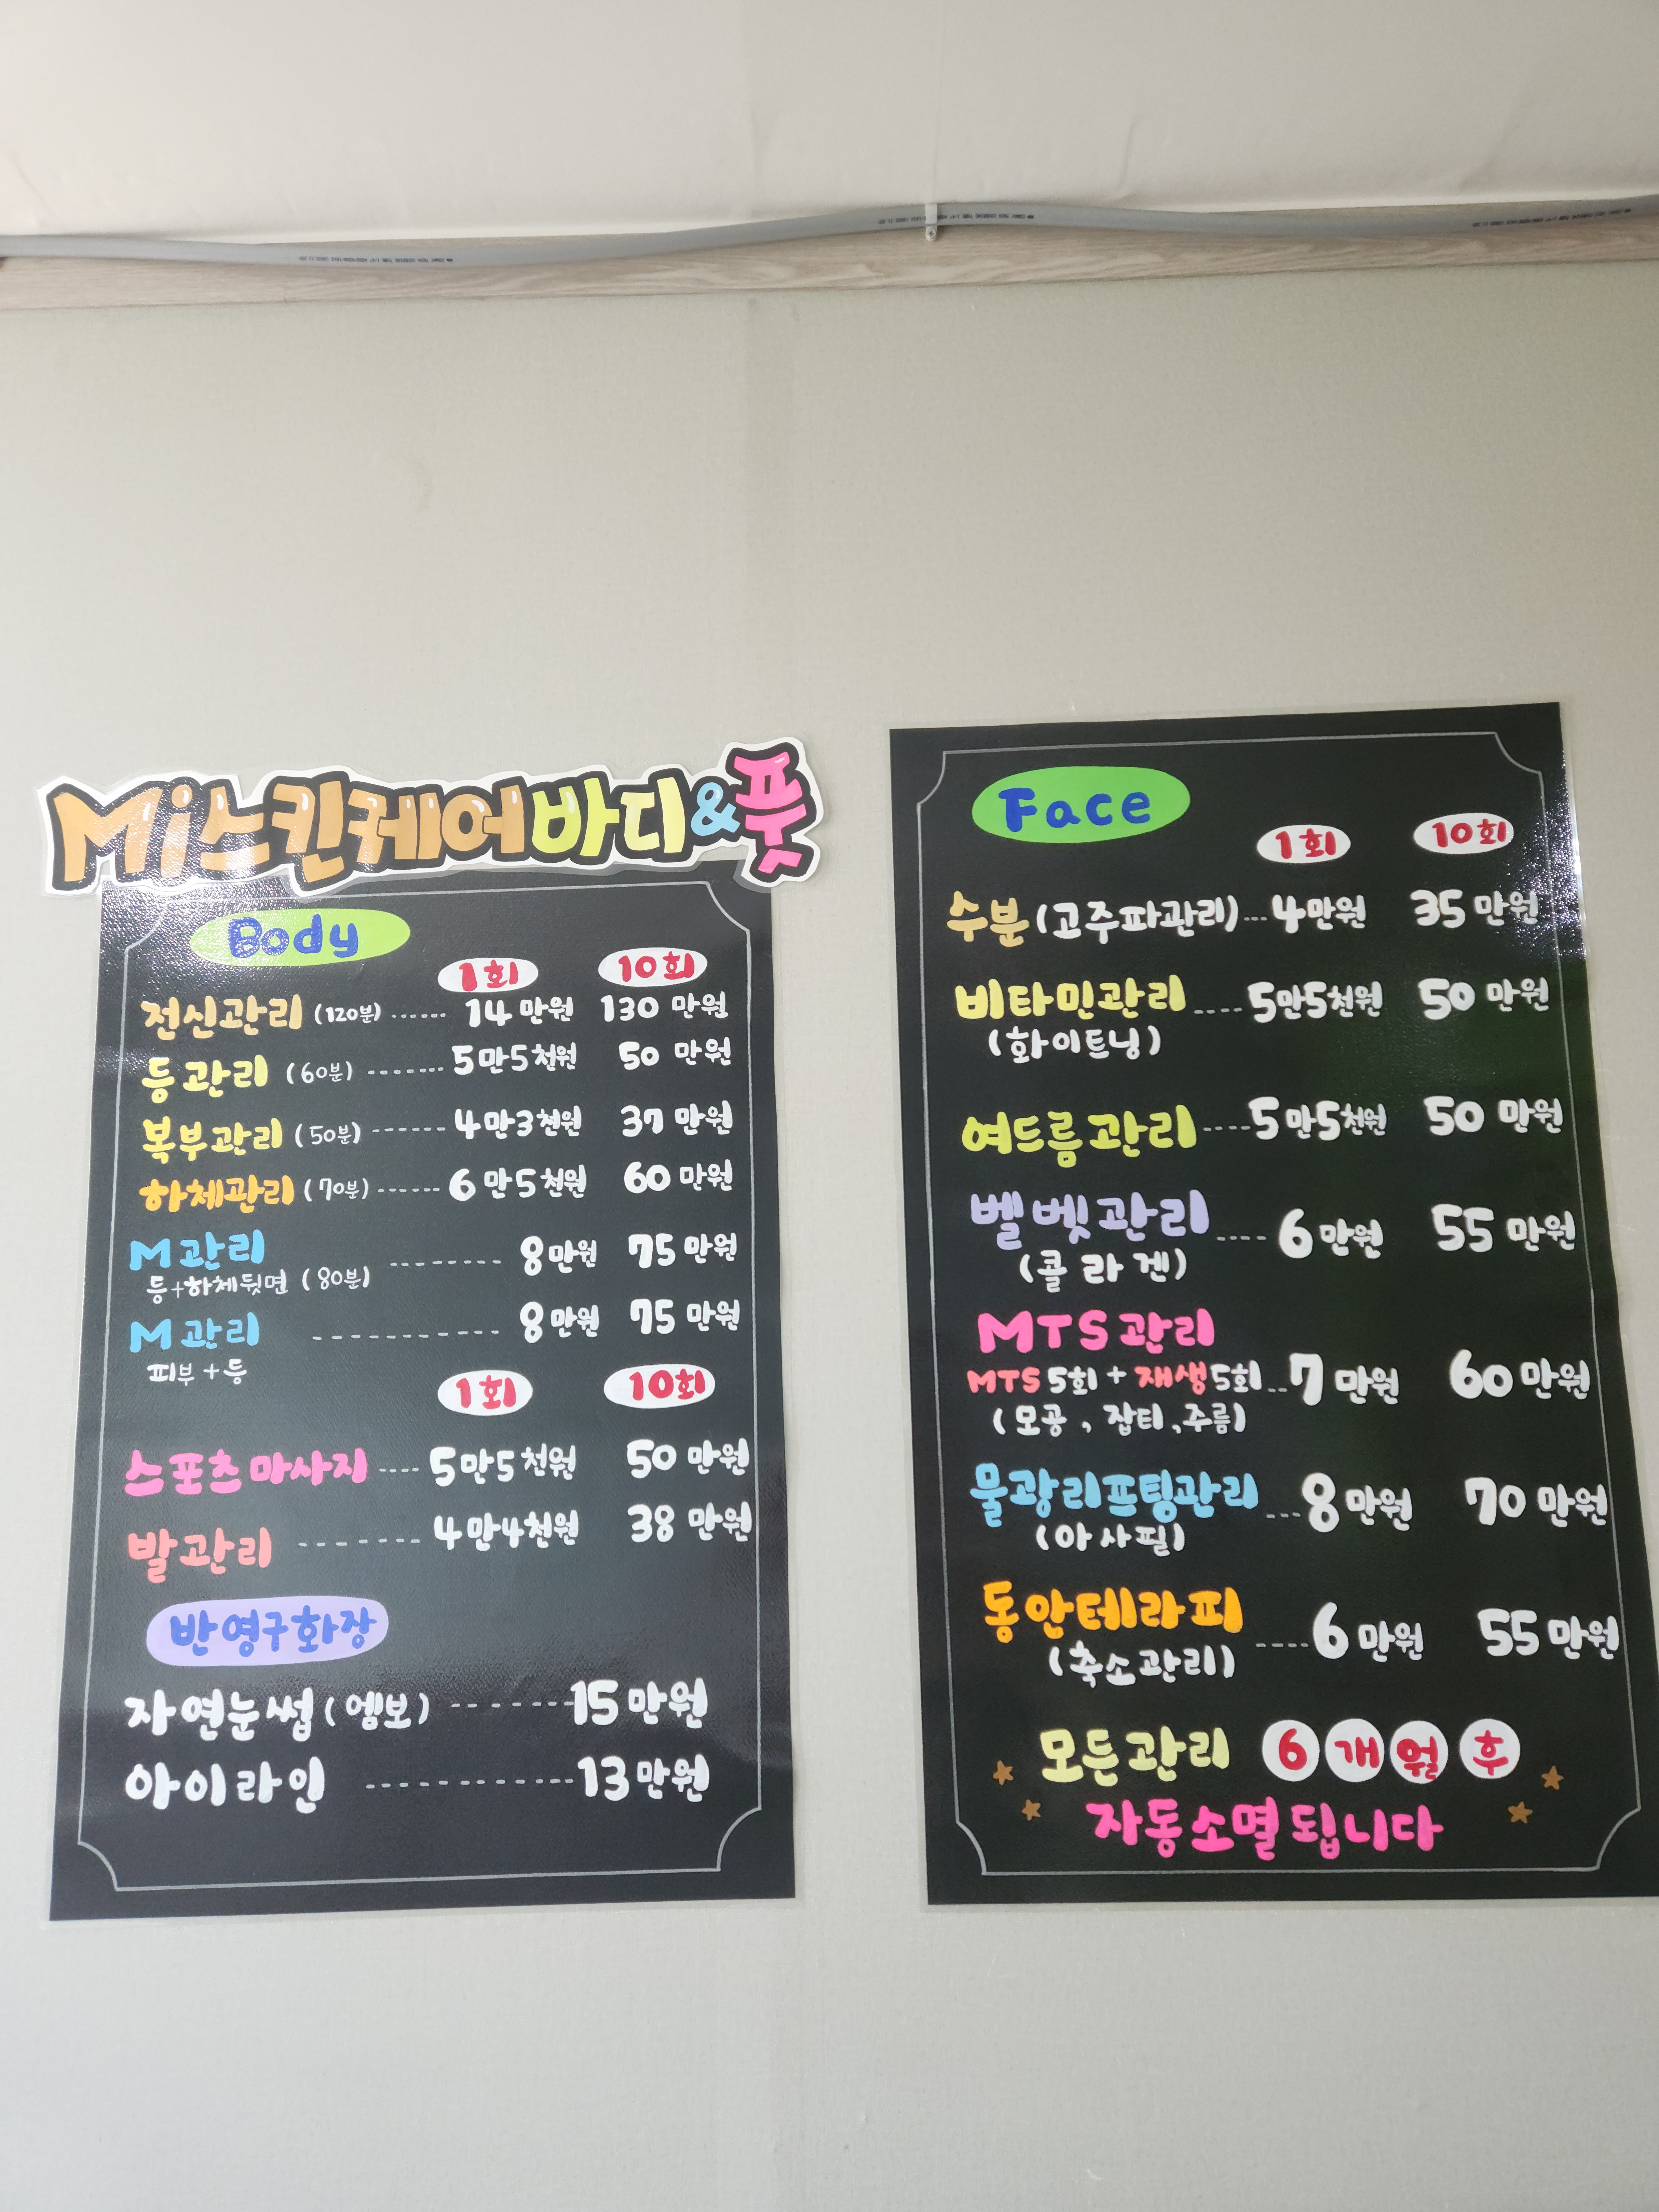 Mi스킨케어바디&풋
Body
1회 10회
전신관리 (120분) ...... 14만원 130만원
등관리 (60분) ------- 5만5천원 50만원
복부관리 (50분) ------- 4만3천원 37만원
하체관리 (70분) ------ 6만5천원 60만원
M관리 ---------- 8만원 75만원
등+하체뒷면 (80분)
M관리 ----------- 8만원 75만원
피부+등
1회 10회
스포츠마사지 ---- 5만5천원 50만원
발관리 ------- 4만4천원 38만원
반영구화장
자연눈썹(엠보) ------- 15만원
아이라인 ------------ 13만원
Face
1회 10회
수분(고주파관리)... 4만원 35만원
비타민관리 .... 5만5천원 50만원
(화이트닝)
여드름관리 .... 5만5천원 50만원
벨벳관리 .... 6만원 55만원
(콜라겐)
MTS관리
MTS5회+재생5회.. 7만원 60만원
(모공, 잡티, 주름)
물광리프팅관리 ... 8만원 70만원
(아사필)
동안테라피 .... 6만원 55만원
(축소관리)
모든관리 6개월후
자동소멸됩니다